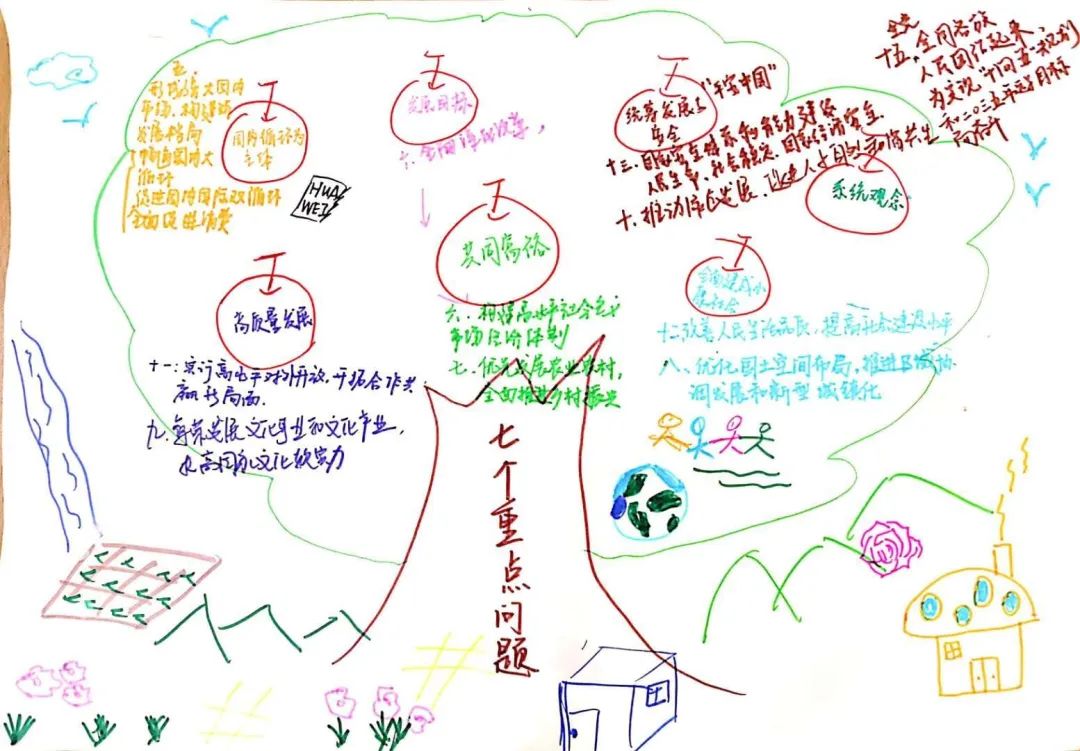 五、
形成强大国内
市场、构建新
发展格局
畅通国内大
循环
促进国内国际双循环
全面促进消费
国内循环为
主体
HUA
WEI
发展目标
六、全面深化改革，
统筹发展与
安全
"平安中国"
十三、国家安全体系和能力建设
人民生命、社会稳定、国家经济安全
十、推动绿色发展，促进人与自然和谐共生
十五、全国各族
人民团结起来
为实现"十四五"规划
和二〇三五年远景目标
而奋斗
系统观念
共同富裕
六、构建高水平社会主义
市场经济体制
七、优先发展农业农村，
全面推进乡村振兴
全面建成小
康社会
十二、改善人民生活品质，提高社会建设水平
八、优化国土空间布局，推进区域协
调发展和新型城镇化
高质量发展
十一、实行高水平对外开放，开拓合作共
赢新局面
九、繁荣发展文化事业和文化产业，
提高国家文化软实力
七个重点问题